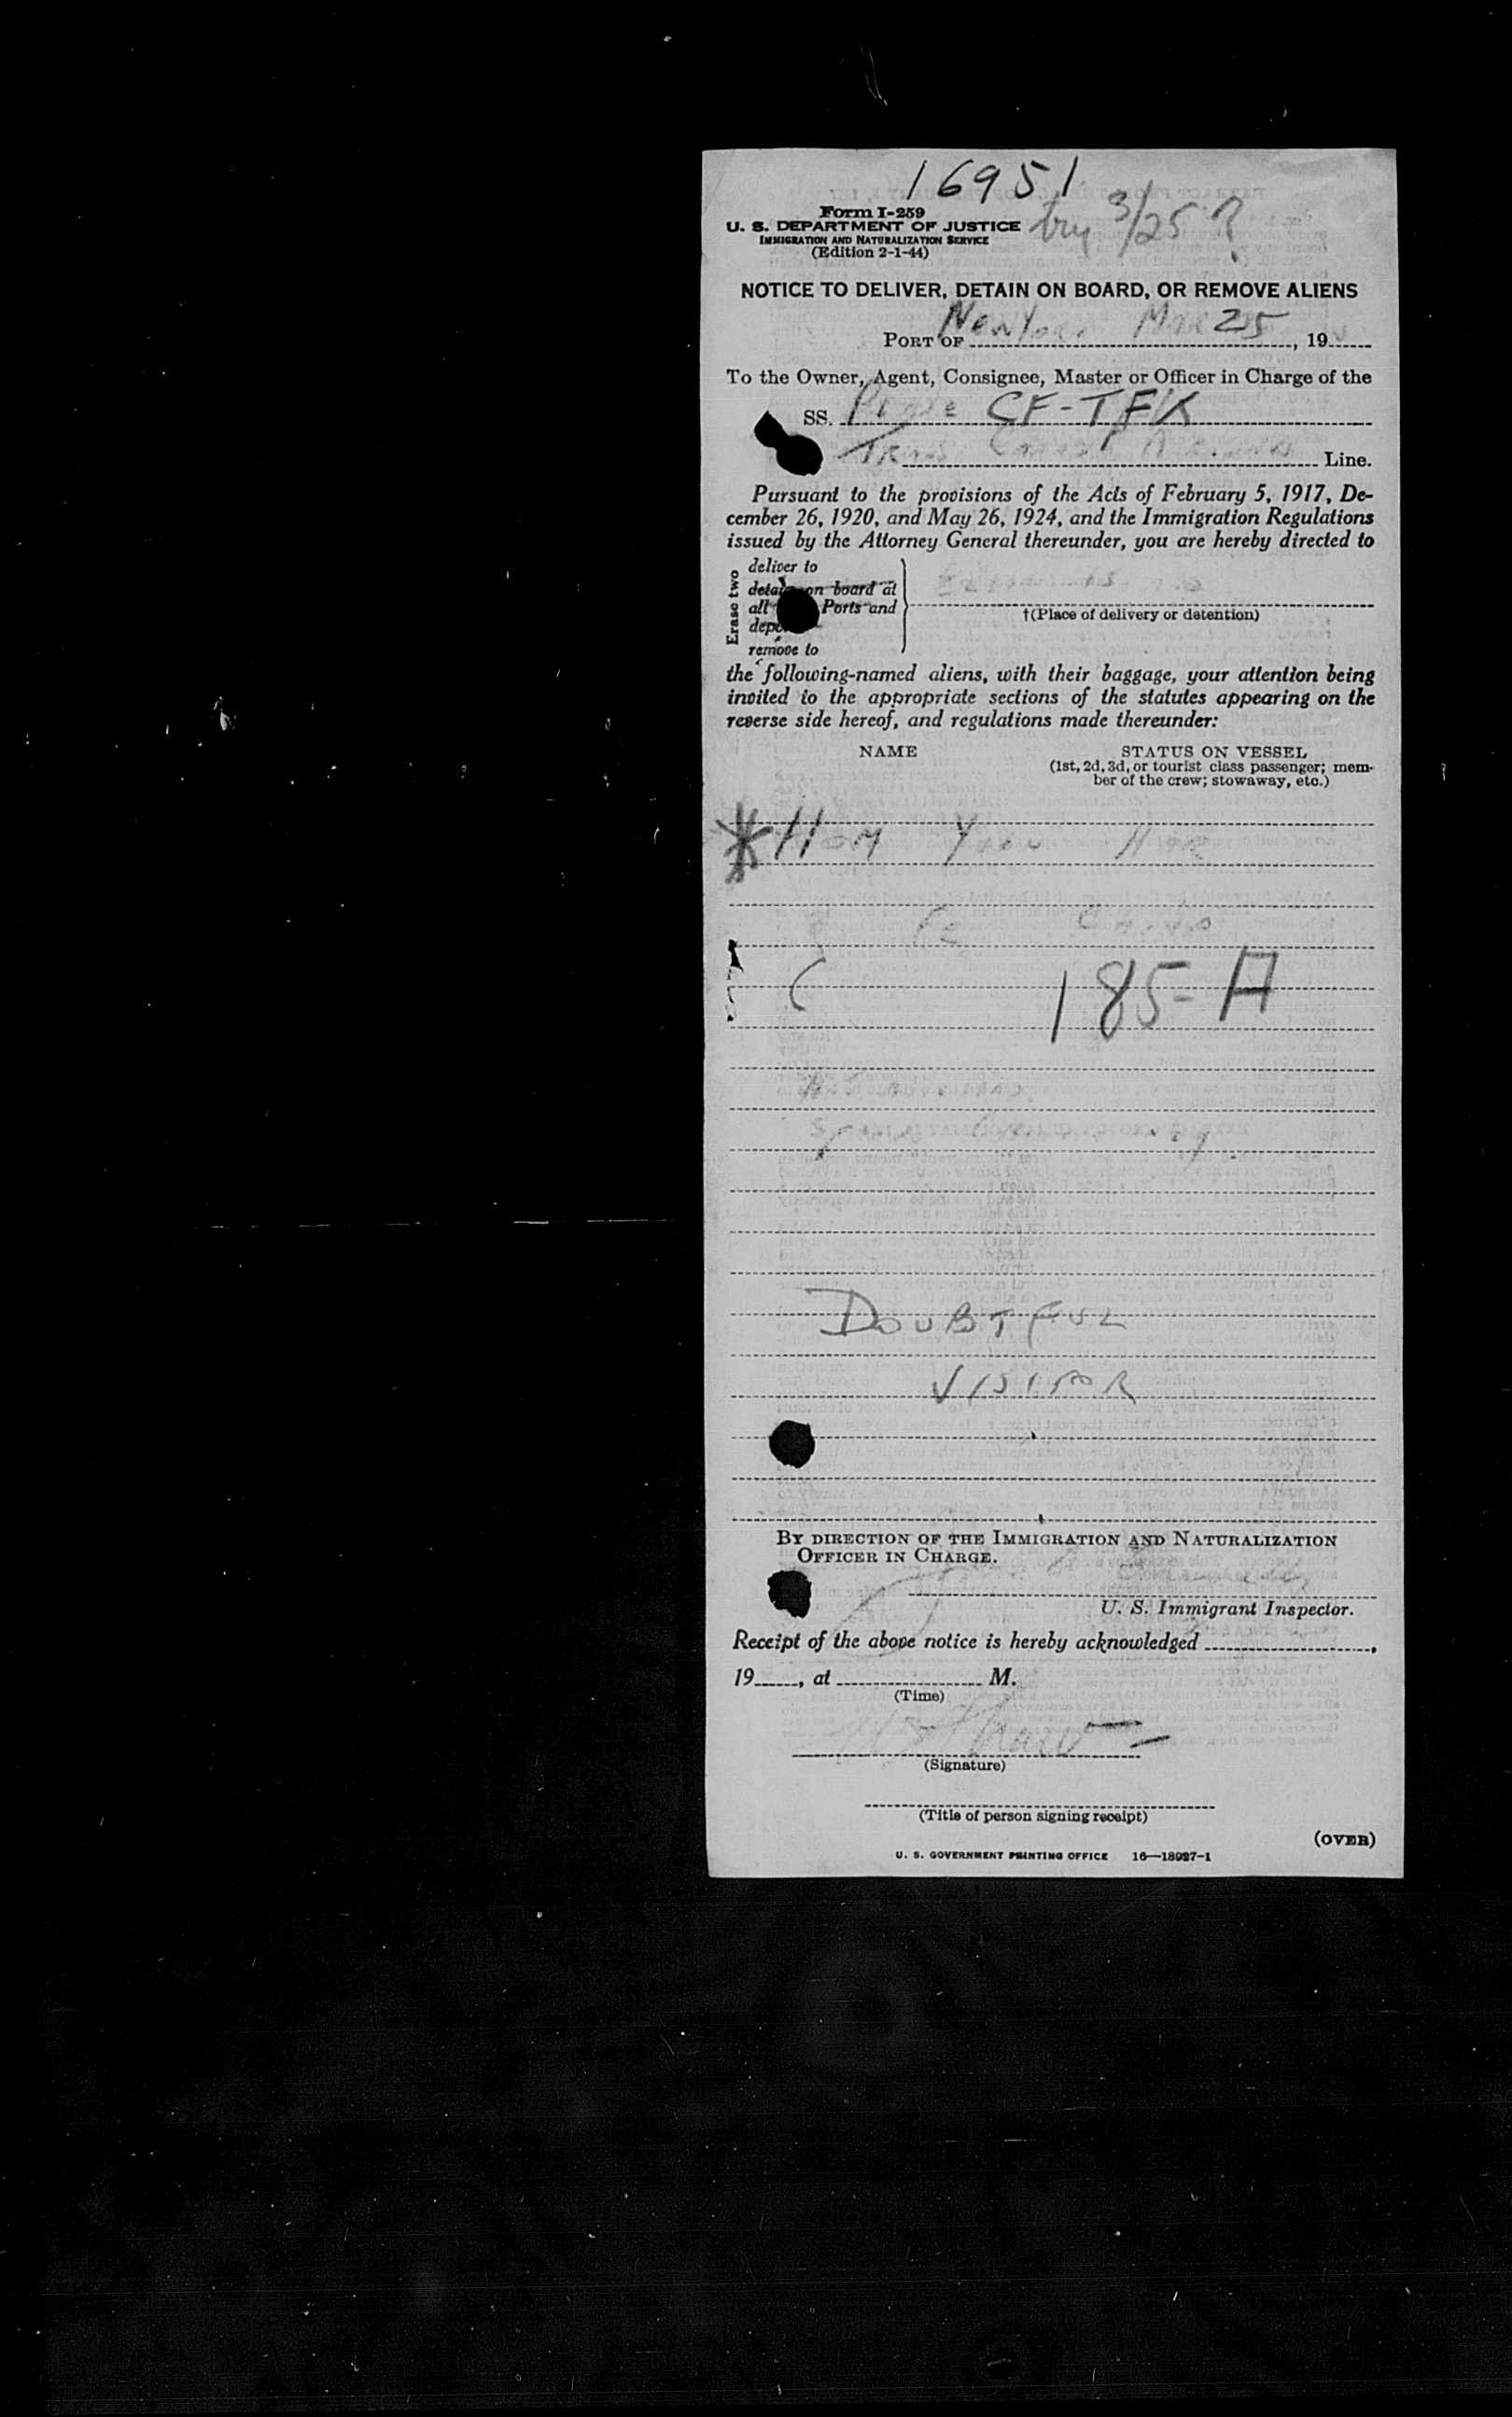 16951
Form I-259
U. S. DEPARTMENT OF JUSTICE
IMMIGRATION AND NATURALIZATION SERVICE
(Edition 2-1-44)
3/25 ?
NOTICE TO DELIVER, DETAIN ON BOARD, OR REMOVE ALIENS
PORT OF New York Mar 25, 19
To the Owner, Agent, Consignee, Master or Officer in Charge of the
SS. Plane CF-TFK
Trans Line.
Pursuant to the provisions of the Acts of February 5, 1917, De-
cember 26, 1920, and May 26, 1924, and the Immigration Regulations
issued by the Attorney General thereunder, you are hereby directed to
Erase two
deliver to
detain on board at
all Ports and
remove to
†(Place of delivery or detention)
the following-named aliens, with their baggage, your attention being
invited to the appropriate sections of the statutes appearing on the
reverse side hereof, and regulations made thereunder:
NAME STATUS ON VESSEL
(1st, 2d, 3d, or tourist class passenger; mem-
ber of the crew; stowaway, etc.)
185-A
DOUBTFUL
VISITOR
BY DIRECTION OF THE IMMIGRATION AND NATURALIZATION
OFFICER IN CHARGE.
U. S. Immigrant Inspector.
Receipt of the above notice is hereby acknowledged ,
19 , at M.
(Time)
(Signature)
(Title of person signing receipt)
(OVER)
U. S. GOVERNMENT PRINTING OFFICE 16—18927-1